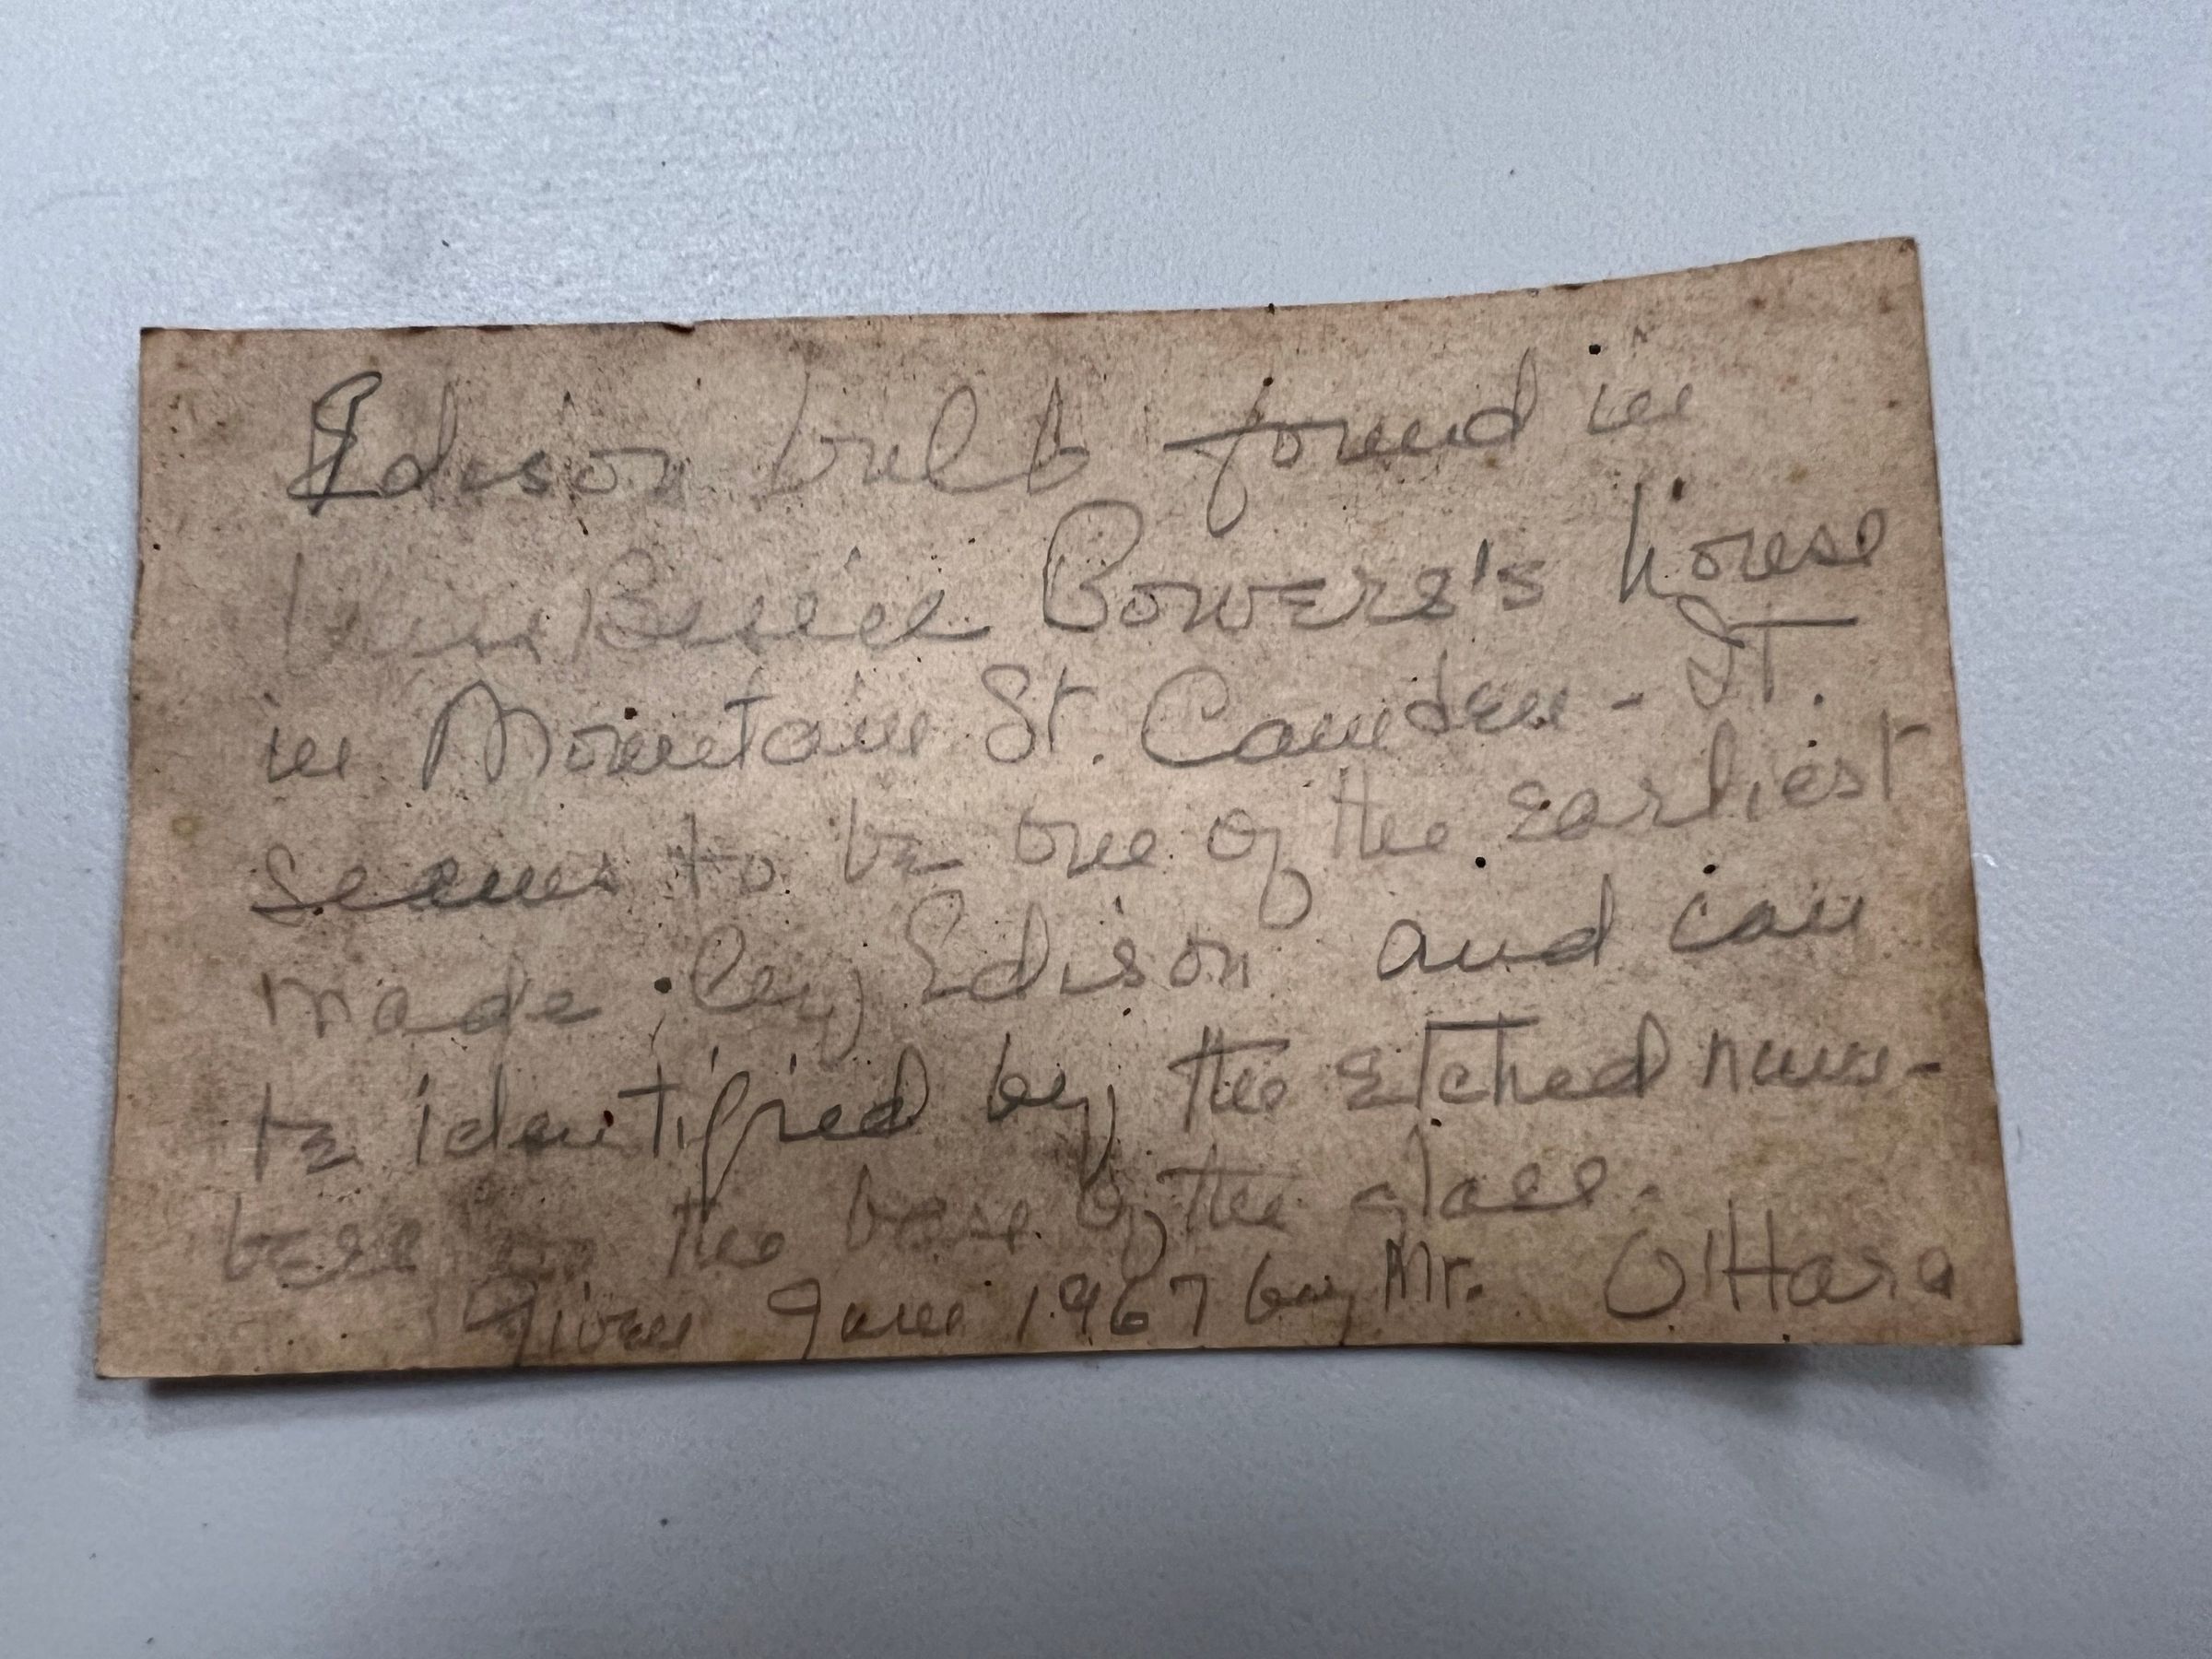 Edison bulb found in
Bowers's house
in Mountain St. Camden - It.
seems to be one of the earliest
made by Edison and can
be identified by the etched num-
bers in the base of the glass.
Given June 1967 by Mr. O'Hara